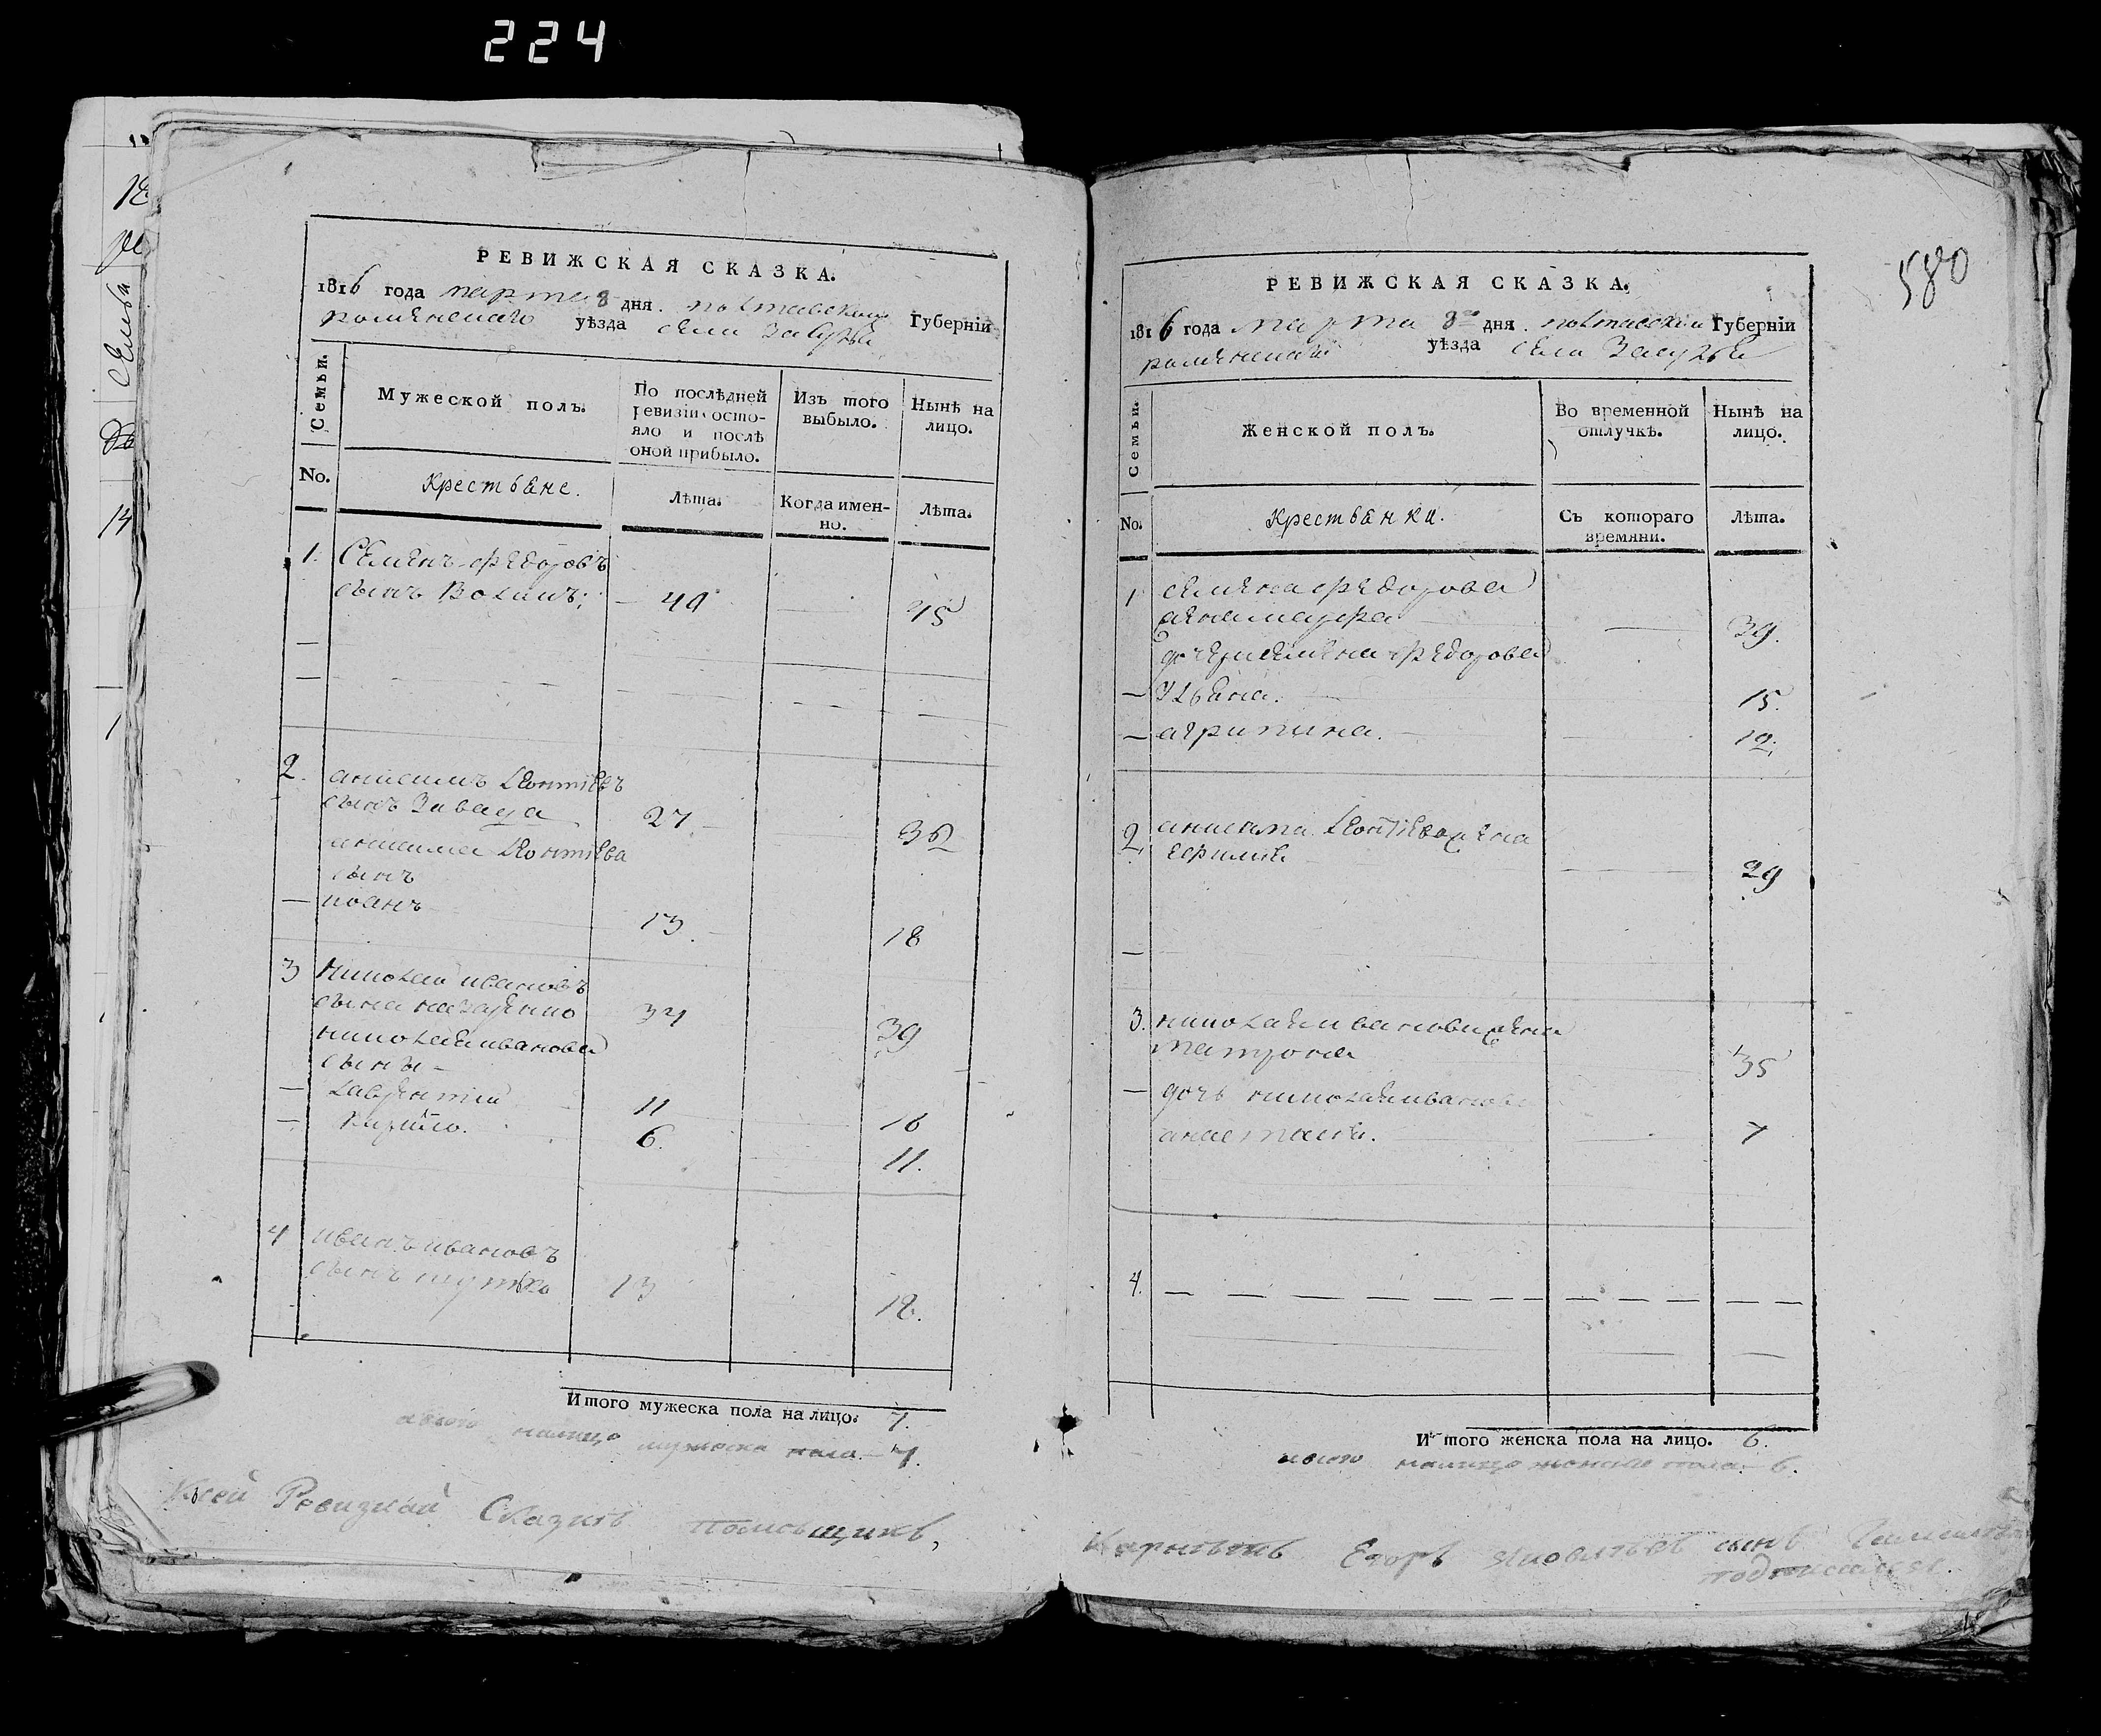 224
РЕВИЖСКАЯ СКАЗКА.
1816 года марта 8 дня полтавской Губерніи
роменскаго уѣзда села Засулья
Семьи.
Мужеской полъ.
По послѣдней ревизіи состо-
яло и послѣ
оной прибыло.
Изъ того
выбыло.
Нынѣ на
лицо.
No.
Крестьяне.
Лѣта.
Когда имен-
но.
Лѣта.
1. Семенъ федоровъ
сынъ 40 45
2. анисимъ леонтіевъ
сынъ 27 32
анисима леонтіева
сынъ
— иоанъ 13 18
3 николай ивановъ
сынъ назаренко 34 39
николая иванова
сыны
— лаврентій 11 16
— кирило. 6. 11.
4 иванъ ивановъ
сынъ 13 18.
Итого мужеска пола на лицо. 7.
всего налицо мужеска пола — 7.
Ксей Ревизкой Сказкѣ помѣщикъ,
580
РЕВИЖСКАЯ СКАЗКА.
1816 года марта 8го дня полтавской Губерніи
роменскаго уѣзда села Засулья
Семьи.
Женской полъ.
Во временной
отлучкѣ.
Нынѣ на
лицо.
No.
Крестьянки.
Съ котораго
времяни.
Лѣта.
1 семена федорова
жена марфа 39.
дочери семена федорова
— Ульяна. 15.
— агрипина. 12.
2. анисима леонтіева жена
ефимія 29
3. николая иванова жена
матрона 35
— дочь николая иванова
анастасія. 7
4.
Итого женска пола на лицо. 6.
всего налицо женска пола — 6.
Егоръ сынъ
подписался.